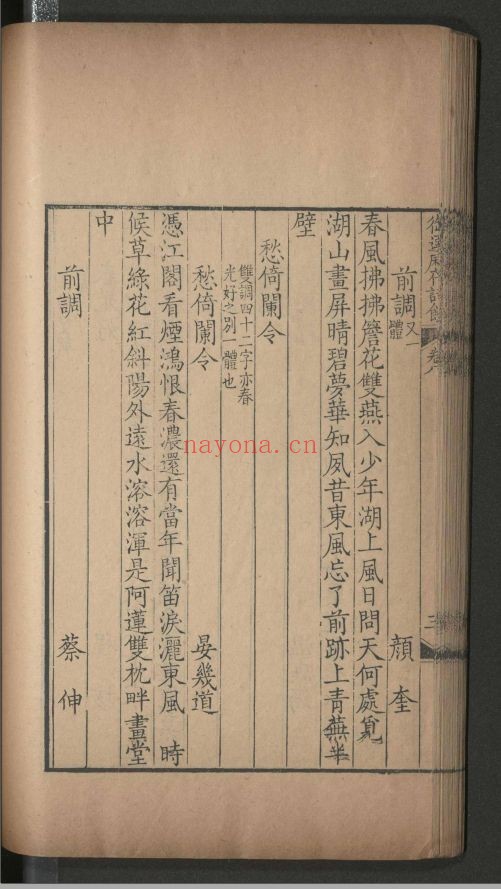 御選歷代詩餘 卷八 三
前調又一體 顏奎
春風拂拂簷花雙燕入少年湖上風日問天何處覓
湖山畫屏晴碧夢華知夙昔東風忘了前跡上青蕪半
壁
愁倚闌令
雙調四十二字亦春
光好之別一體也
愁倚闌令 晏幾道
憑江閣看煙鴻恨春濃還有當年聞笛淚灑東風 時
候草綠花紅斜陽外遠水溶溶渾是阿蓮雙枕畔畫堂
中
前調 蔡伸
nayona.cn